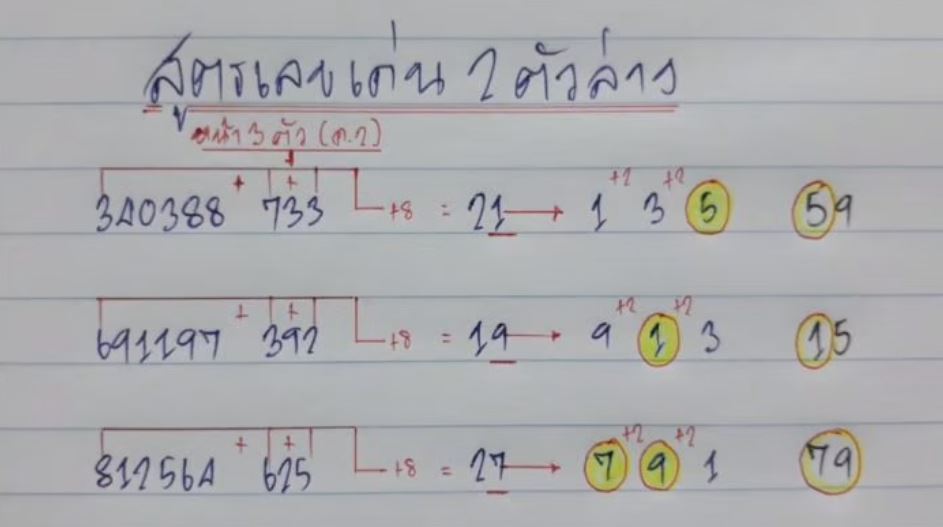 สูตรเลขเด่น 2 ตัวล่าง
หน้า 3 ตัว (ค.2)
340388 + 7+33 +8 = 21 → 1 +2 3 +2 5 59
691197 + 3+92 +8 = 19 → 9 +2 1 +2 3 15
812564 + 6+25 +8 = 27 → 7 +2 9 +2 1 79